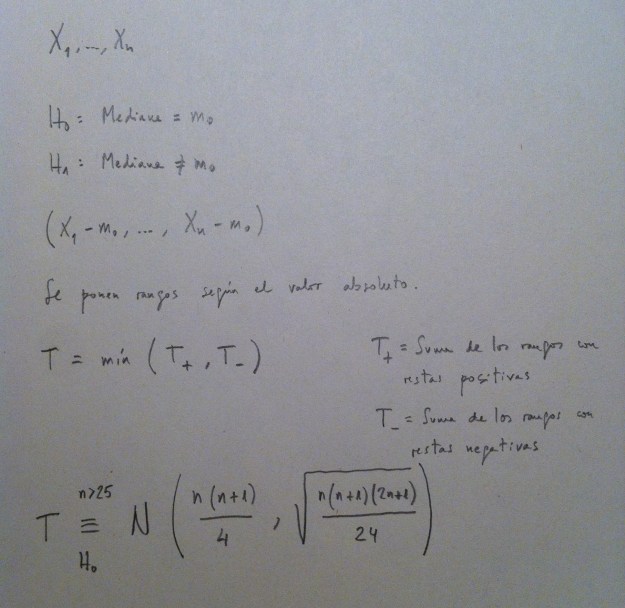 X₁, ..., Xₙ
H₀ : Mediana = m₀
H₁ : Mediana ≠ m₀
(X₁ - m₀, ..., Xₙ - m₀)
Se ponen rangos según el valor absoluto.
T = min (T₊, T₋)
T₊ = Suma de los rangos con
restas positivas
T₋ = Suma de los rangos con
restas negativas
n>25
T ≡ N ( n(n+1)/4 , √(n(n+1)(2n+1)/24) )
H₀